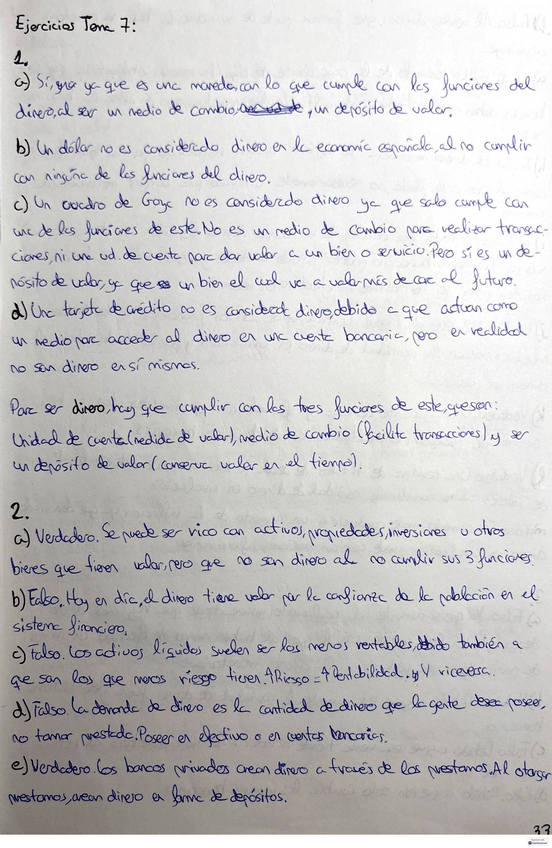 Ejercicios Tema 7:
1.
a) Sí, ya que es una moneda, con lo que cumple con las funciones del
dinero, al ser un medio de cambio, un depósito de valor.
b) Un dólar no es considerado dinero en la economía española, al no cumplir
con ninguna de las funciones del dinero.
c) Un cuadro de Goya no es considerado dinero ya que solo cumple con
una de las funciones de este. No es un medio de cambio para realizar transac-
ciones, ni una ud. de cuenta para dar valor a un bien o servicio. Pero sí es un de-
pósito de valor, ya que es un bien el cual va a valer más de cara al futuro.
d) Una tarjeta de crédito no es considerada dinero, debido a que actúan como
un medio para acceder al dinero en una cuenta bancaria, pero en realidad
no son dinero en sí mismas.
Para ser dinero, hay que cumplir con las tres funciones de este, que son:
Unidad de cuenta (medida de valor), medio de cambio (facilita transacciones) y ser
un depósito de valor (conserva valor en el tiempo).
2.
a) Verdadero. Se puede ser rico con activos, propiedades, inversiones u otros
bienes que tienen valor, pero que no son dinero al no cumplir sus 3 funciones.
b) Falso. Hoy en día, el dinero tiene valor por la confianza de la población en el
sistema financiero.
c) Falso. Los activos líquidos suelen ser los menos rentables, debido también a
que son los que menos riesgo tienen. ↑Riesgo = ↑Rentabilidad. y V viceversa.
d) Falso. La demanda de dinero es la cantidad de dinero que la gente desea poseer,
no tomar prestada. Poseer en efectivo o en cuentas bancarias.
e) Verdadero. Los bancos privados crean dinero a través de los prestamos. Al otorgar
prestamos, crean dinero en forma de depósitos.
33